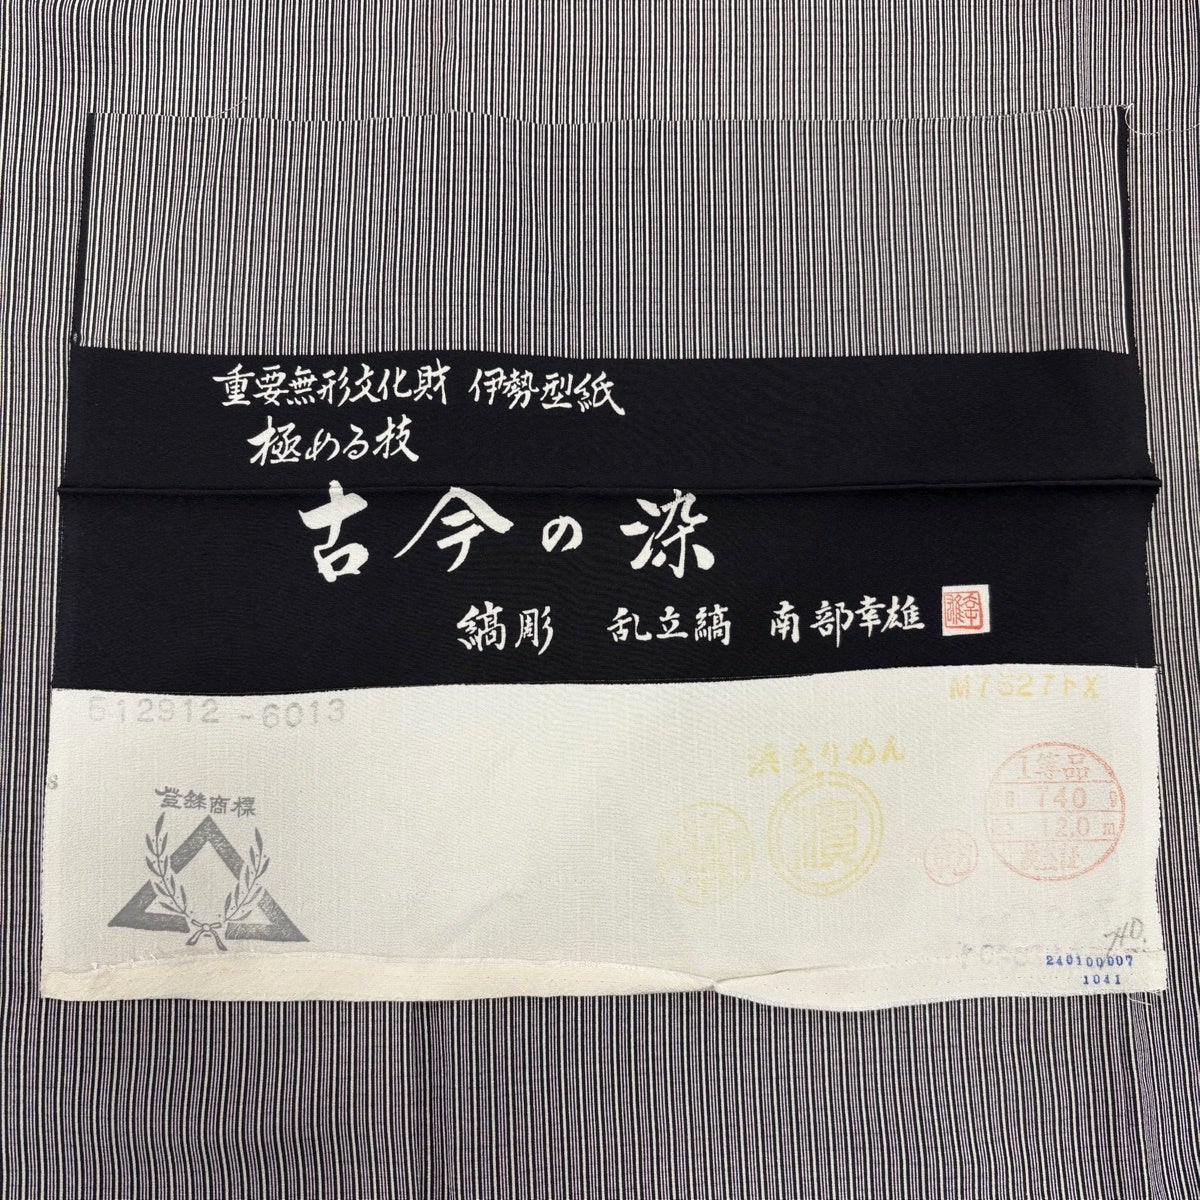 重要無形文化財 伊勢型紙
極める技
古今の染
縞彫 乱立縞 南部幸雄
612912-6013
M7627トX
浜ちりめん
登録商標
濱
1等品
740 g
12.0 m
240100007
1041